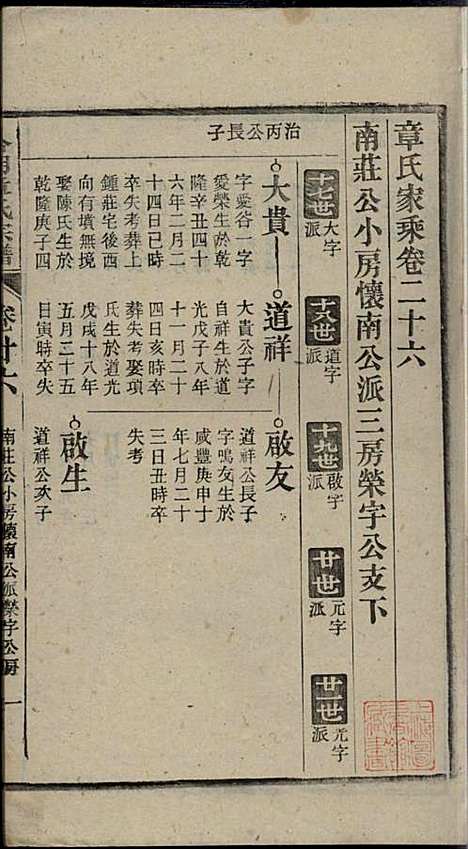 章氏家乘卷二十六
南莊公小房懷南公派三房榮字公支下
十七世 大字派
十八世 道字派
十九世 啟字派
廿世 元字派
廿一世 光字派
治丙公長子
大貴
字愛谷一字
愛榮生於乾
隆辛丑四十
六年二月二
十四日己時
卒失考葬上
鍾莊宅後西
向有墳無境
娶陳氏生於
乾隆庚子四
道祥
大貴公子字
自祥生於道
光戊子八年
十一月二十
四日亥時卒
葬失考娶項
氏生於道光
戊戌十八年
五月二十五
日寅時卒失
啟友
道祥公長子
字鳴友生於
咸豐庚申十
年七月二十
三日丑時卒
失考
啟生
道祥公次子
章氏宗譜
卷廿六
南莊公小房懷南公派榮字公房
一